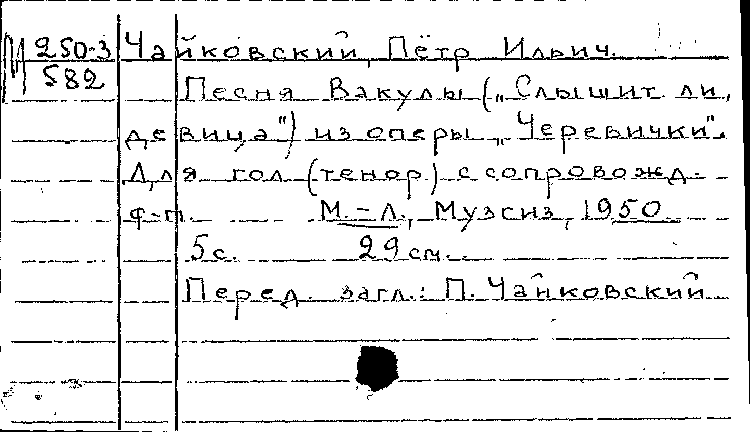 М 250-3 Чайковский, Пётр Ильич.
582
Песня Вакулы („Слышит ли,
девица") из оперы „Черевички".
Для гол. (тенор) с сопровожд.
ф-п. М.-Л., Музгиз, 1950
5с. 29 см.
Перед загл.: П. Чайковский